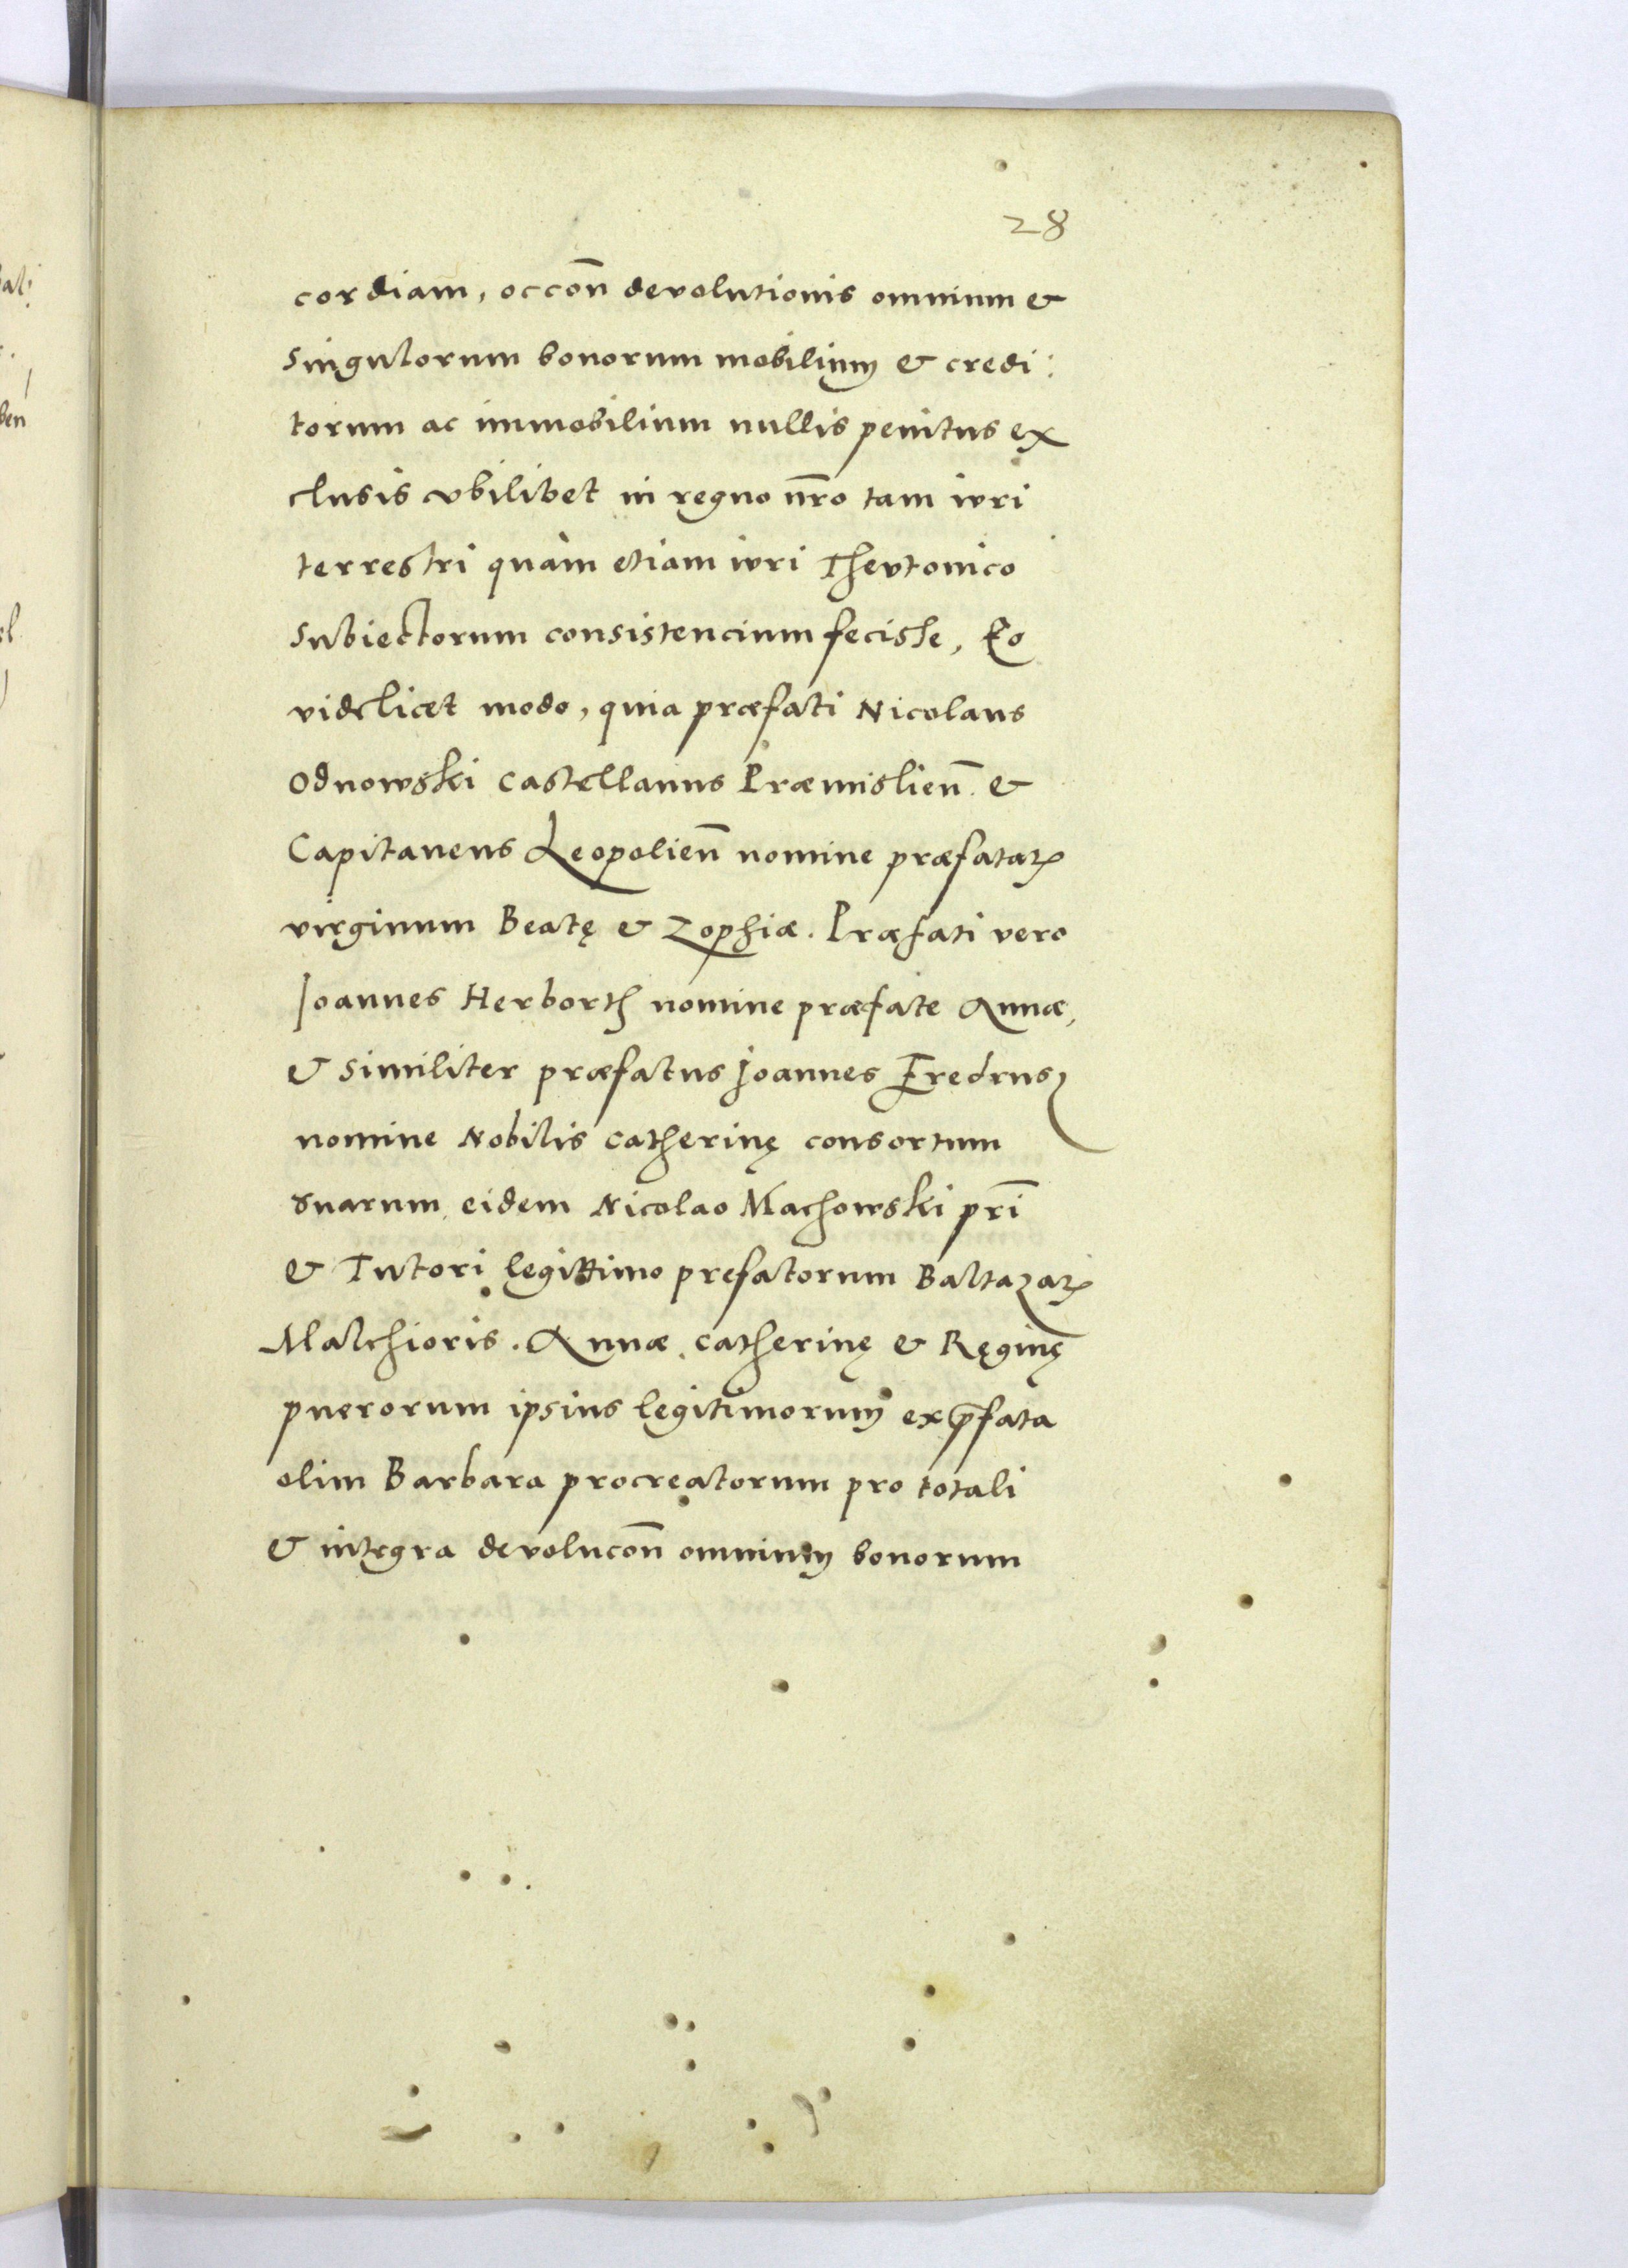 28
cordiam, occoñ devolutionis omnium &
Singulorum bonorum mobilium & credi:
torum ac immobilium nullis penitus ex
clusis vbilibet in regno nr̃o tam iuri
terrestri quàm etiam iuri Thevtonico
Subiectorum consistencium fecisse, Eo
videlicet modo, quia præfati Nicolaus
Odnowski Castellanus Præmislień &
Capitaneus Leopolień nomine præfatarꝝ
virginum Beatę & Zophiæ. Præfati vero
Joannes Herborth nomine præfate Annæ,
& Similiter præfatus Joannes Fredrus
nomine Nobilis Catherinę consortum
suarum eidem Nicolao Machowski pr̃i
& Tutori legittimo prefatorum Baltazarꝝ
Malchioris. Annæ Catherinę & Ręginę
puerorum ipsius legitimorum ex p̃fata
olim Barbara procreatorum pro totali
& integra devolucoñ omnium bonorum